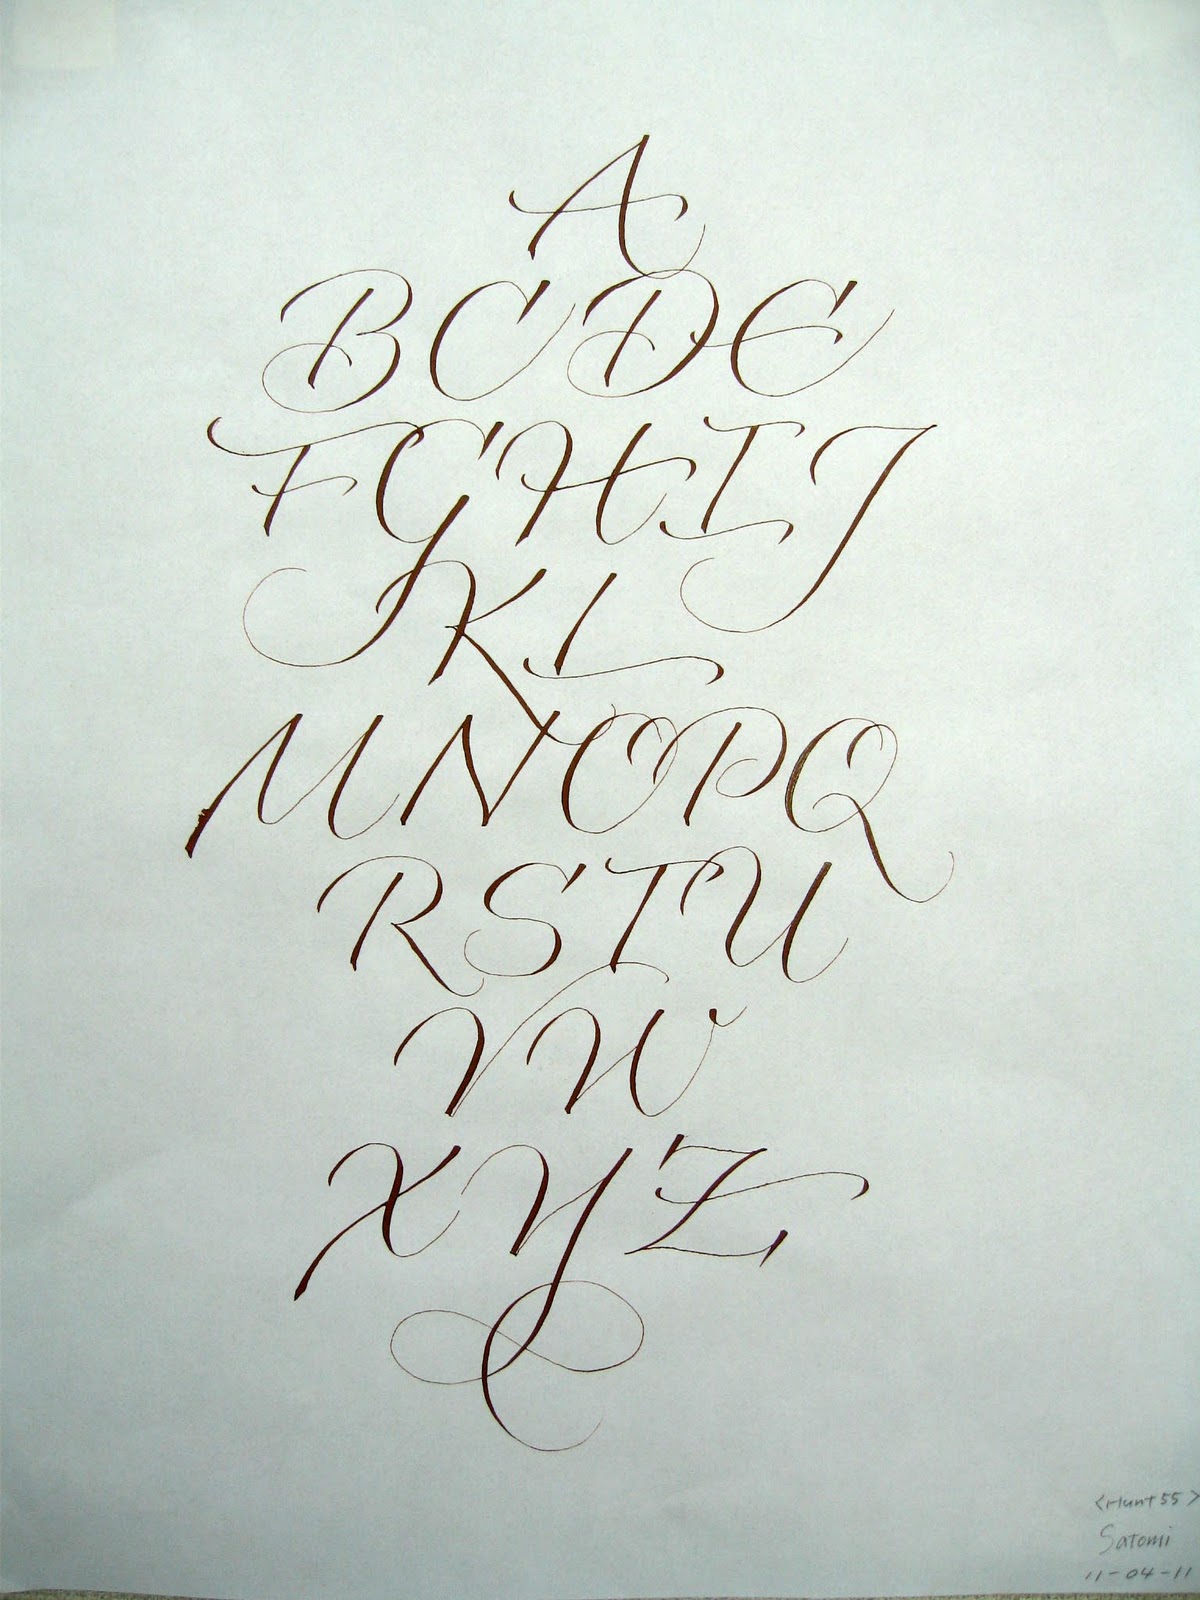 A
BCDE
FGHIJ
KL
MNOPQ
RSTU
VW
XYZ
<Hunt 55>
Satomi
11-04-11